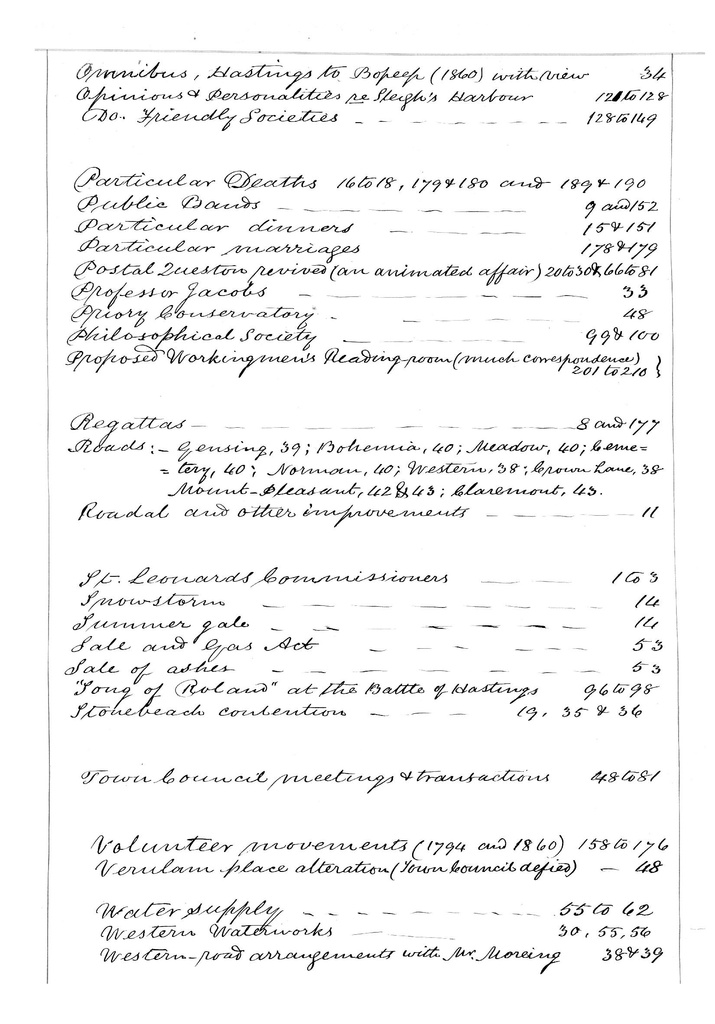 Omnibus, Hastings to Bopeep (1860) with view 34
Opinions & Personalities re Sleigh's Harbour 121 to 128
Do. Friendly Societies — — — — — — 128 to 149
Particular Deaths 16 to 18, 179 & 180 and 189 & 190
Public Bands — — — — — — 9 and 152
Particular dinners — — — — 15 & 151
Particular marriages 178 & 179
Postal Queston revived (an animated affair) 20 to 30 & 66 to 81
Professor Jacobs — — — — — — — 33
Priory Conservatory — — — — — — 48
Philosophical Society — — — — — 99 & 100
Proposed Workingmen's Reading-room (much correspondence)
201 to 210 }
Regattas — — — — — — — 8 and 177
Roads:— Gensing, 39; Bohemia, 40; Meadow, 40; Ceme=
= tery, 40; Norman, 40; Western, 38; Crown Lane, 38
Mount-Pleasant, 42 & 43; Claremont, 43.
Roadal and other improvements — — — — 11
St. Leonards Commissioners — — — 1 to 3
Snowstorm — — — — — — — — 14
Summer gale — — — — — — — 14
Sale and Gas Act — — — — — — 53
Sale of ashes — — — — — — — 53
"Song of Roland" at the Battle of Hastings 96 to 98
Stonebeach contention — — — 19, 35 & 36
Town Council meetings & transactions 48 to 81
Volunteer movements (1794 and 1860) 158 to 176
Verulam place alteration (Town Council defied) — 48
Water supply — — — — — — — 55 to 62
Western Waterworks — — — — 30, 55, 56
Western-road arrangements with Mr. Moreing 38 & 39